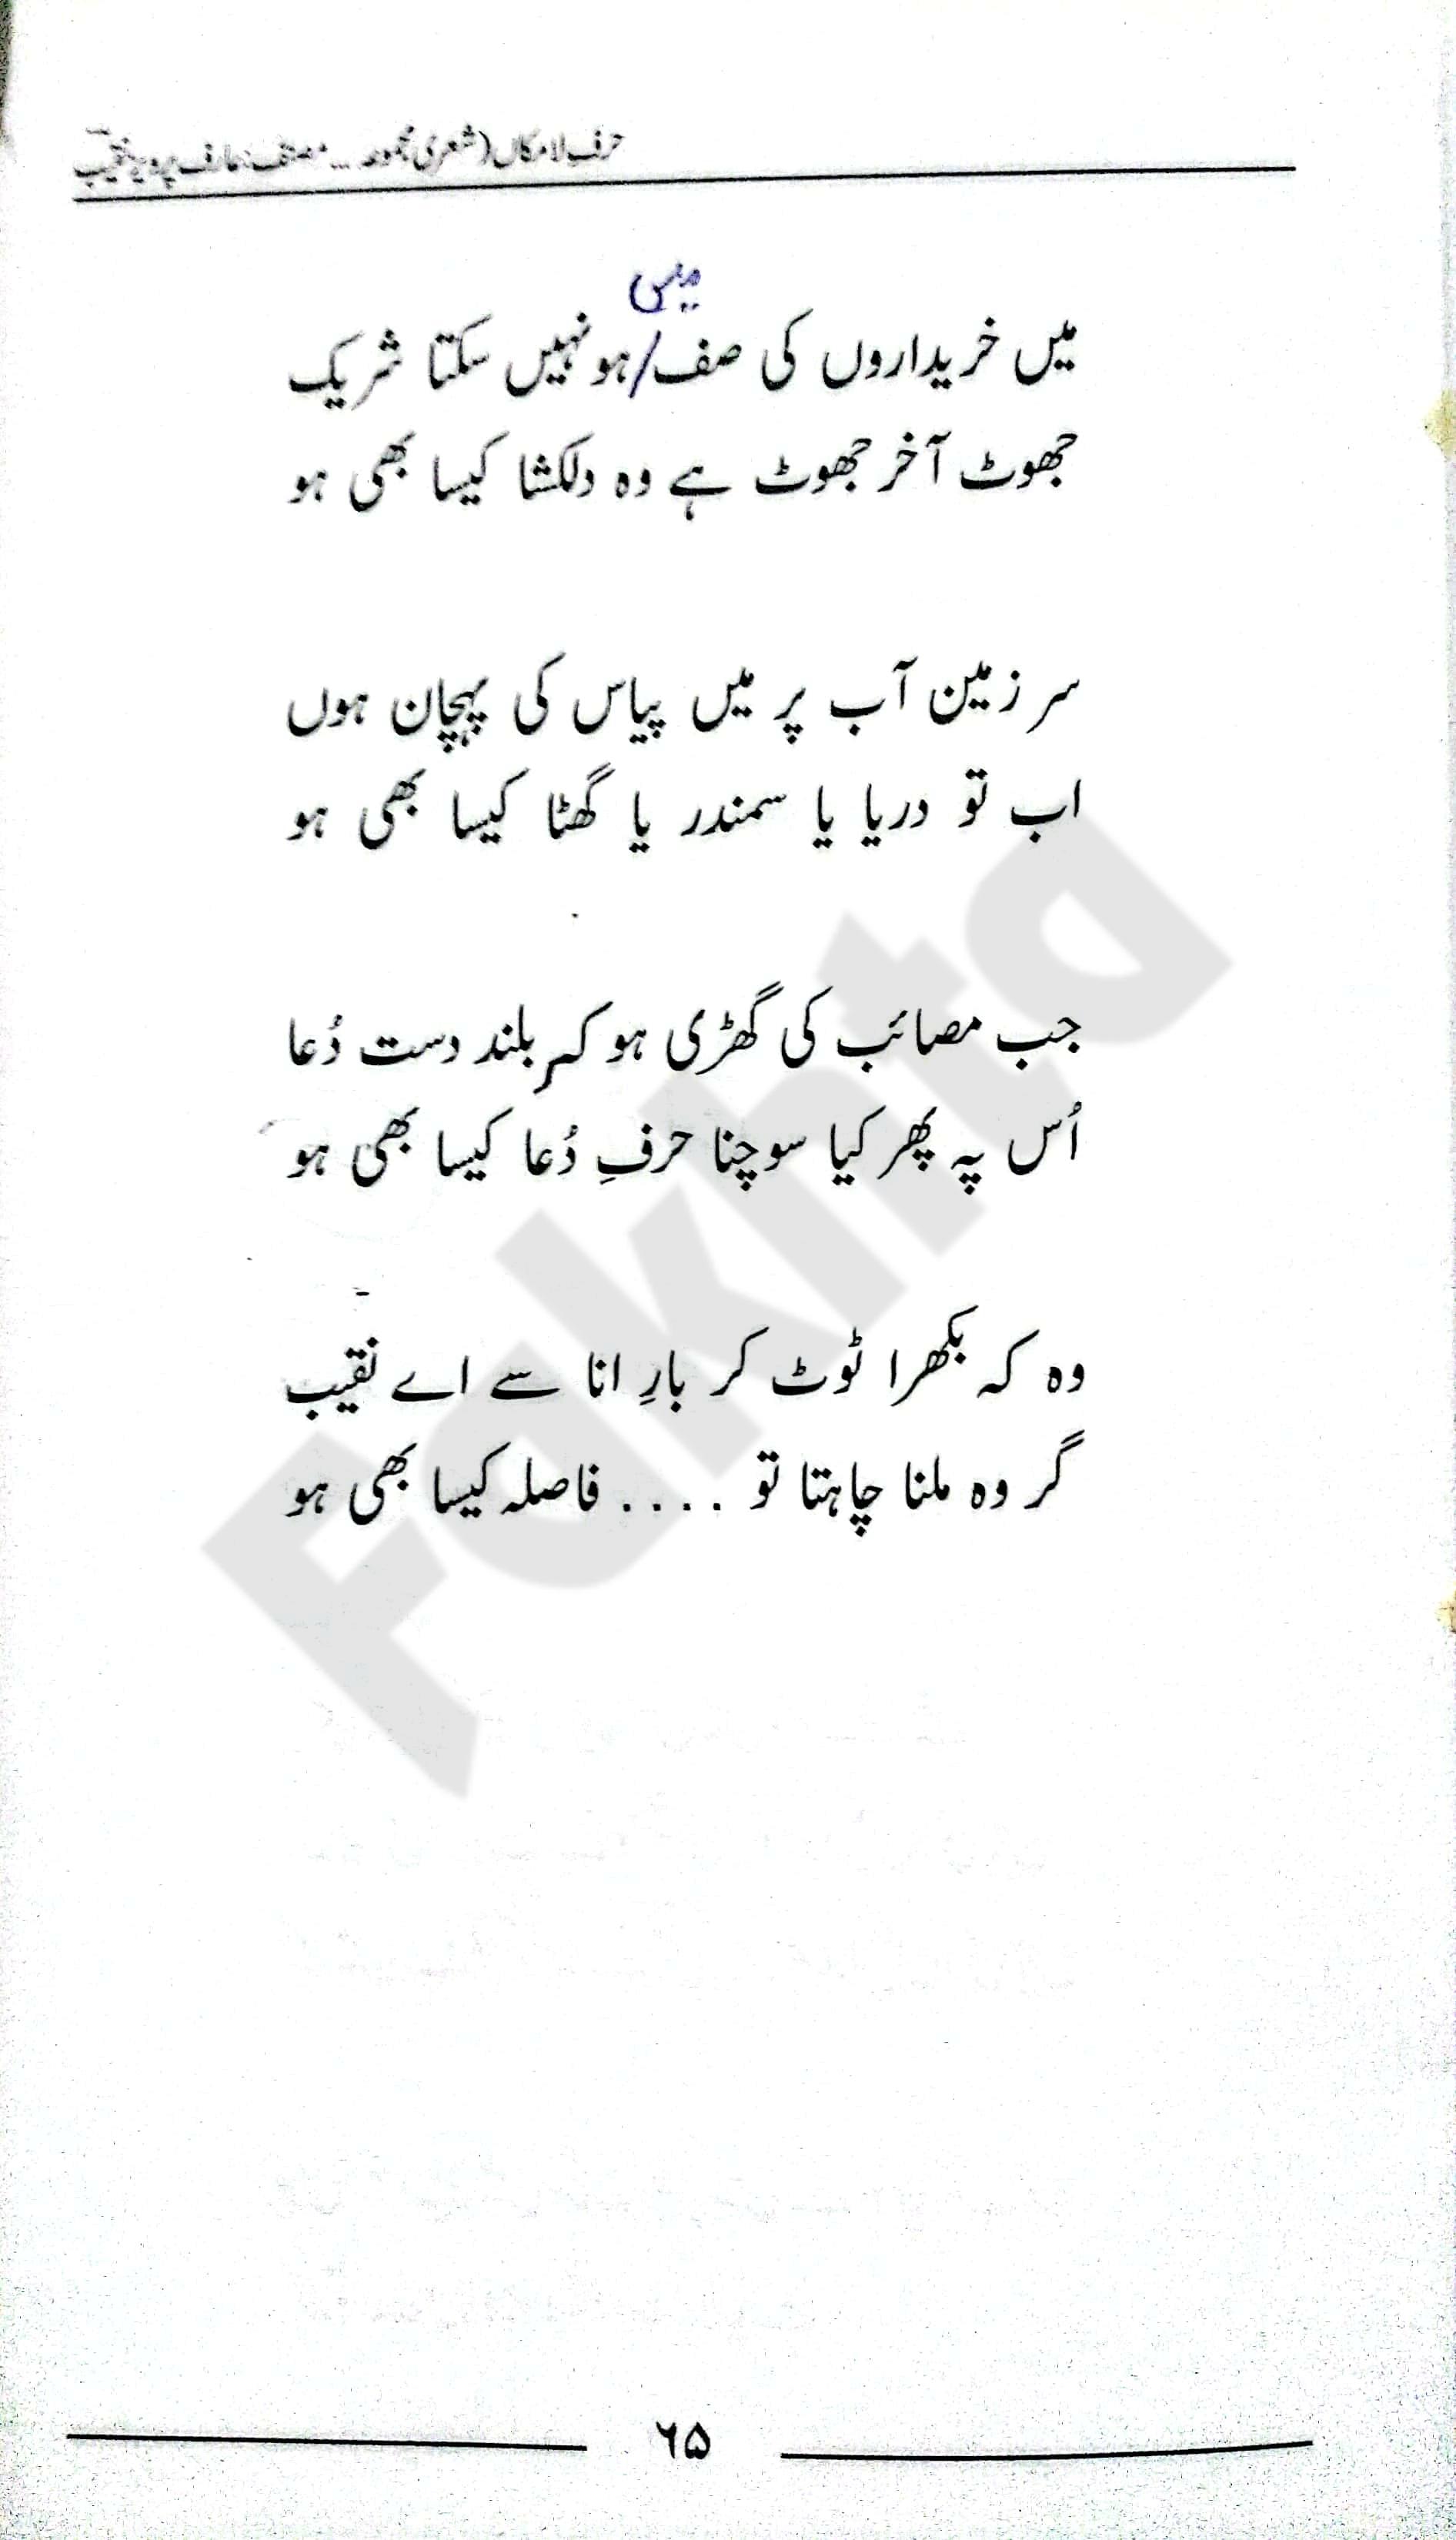 حرفِ لامکاں (شعری مجموعہ ... مصنف: عارف پرویز نقیب
میں
میں خریداروں کی صف/ہو نہیں سکتا شریک
جھوٹ آخر جھوٹ ہے وہ دلکشا کیسا بھی ہو
سر زمین آب پر میں پیاس کی پہچان ہوں
اب تو دریا یا سمندر یا گھٹا کیسا بھی ہو
جب مصائب کی گھڑی ہو کر بلند دست دُعا
اُس پہ پھر کیا سوچنا حرفِ دُعا کیسا بھی ہو
وہ کہ بکھرا ٹوٹ کر بارِ انا سے اے نقیب
گر وہ ملنا چاہتا تو .... فاصلہ کیسا بھی ہو
Fakhta
۶۵